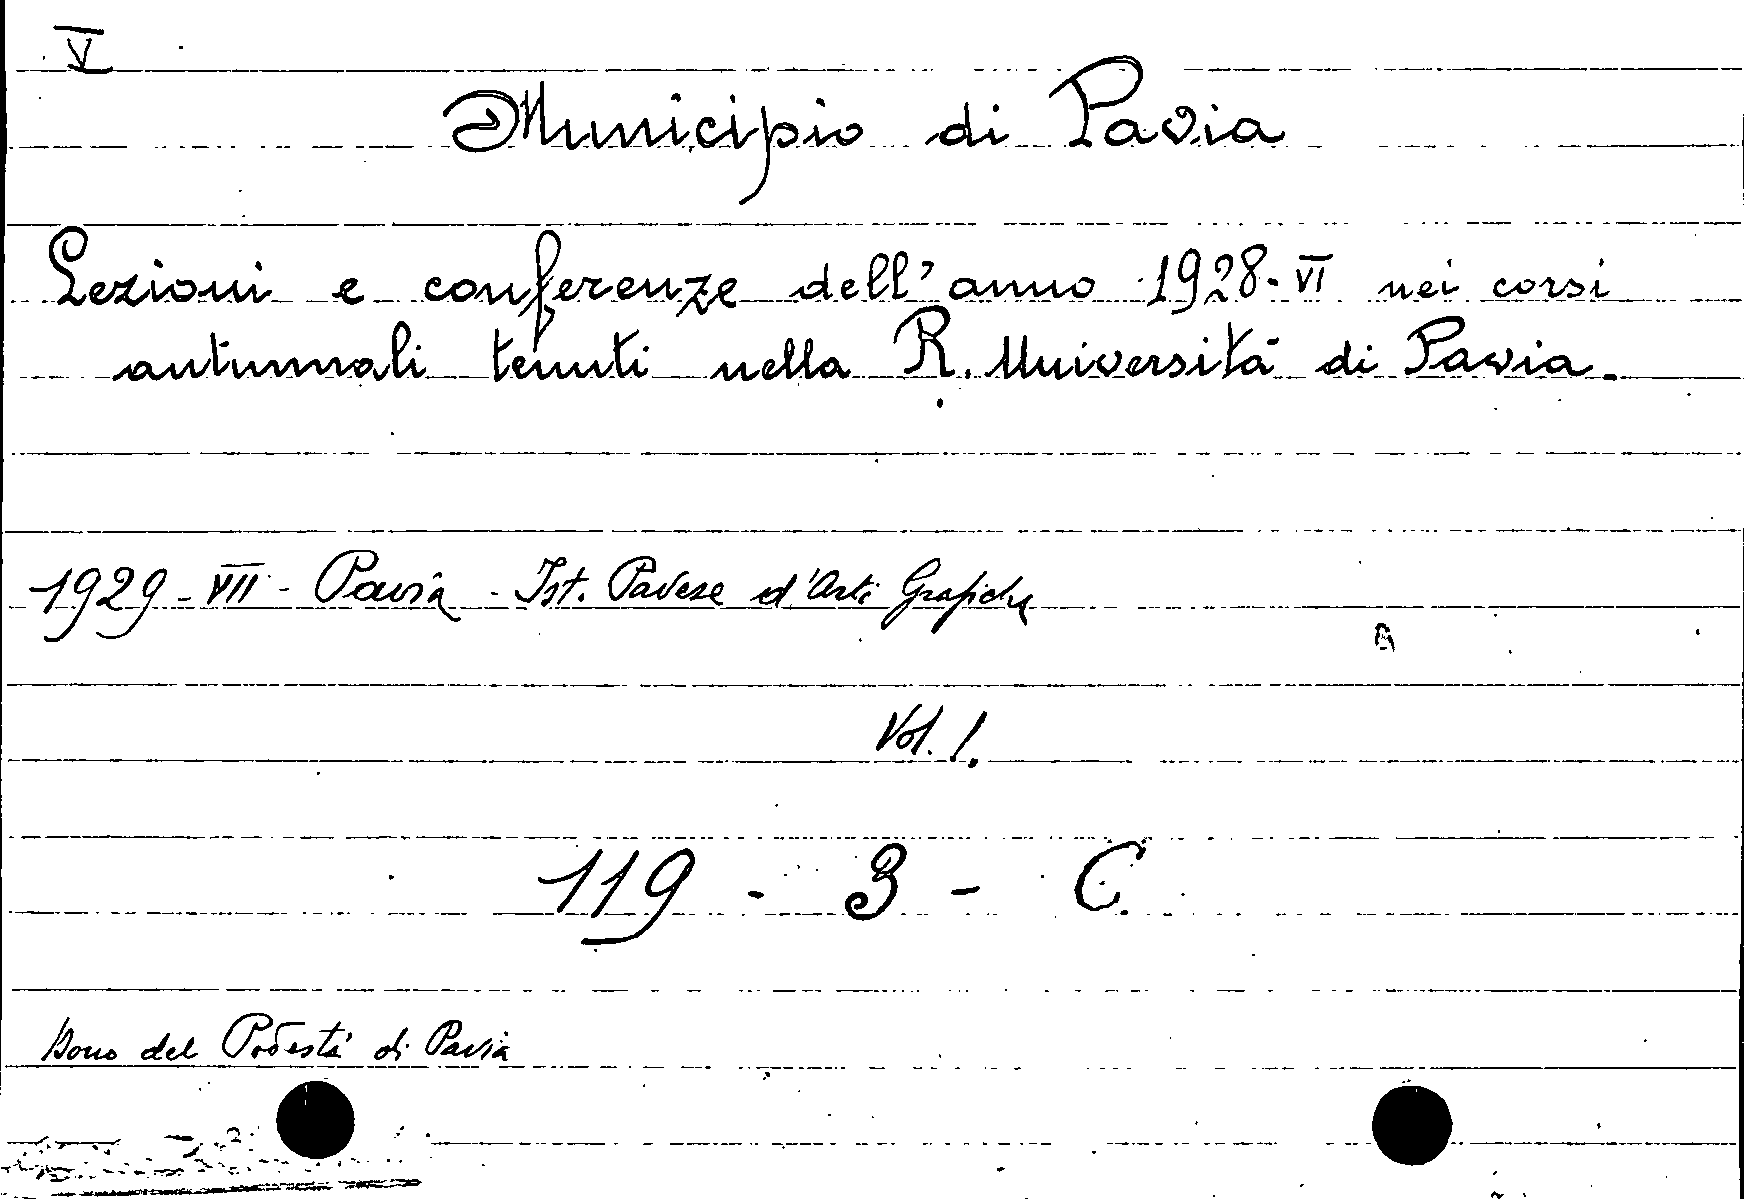 V
Municipio di Pavia
Lezioni e conferenze dell'anno 1928-VI nei corsi
autunnali tenuti nella R. Università di Pavia.
1929 - VII - Pavia - Ist. Pavese d'Arti Grafiche
Vol. 1.
119 - 3 - C
Dono del Podestà di Pavia